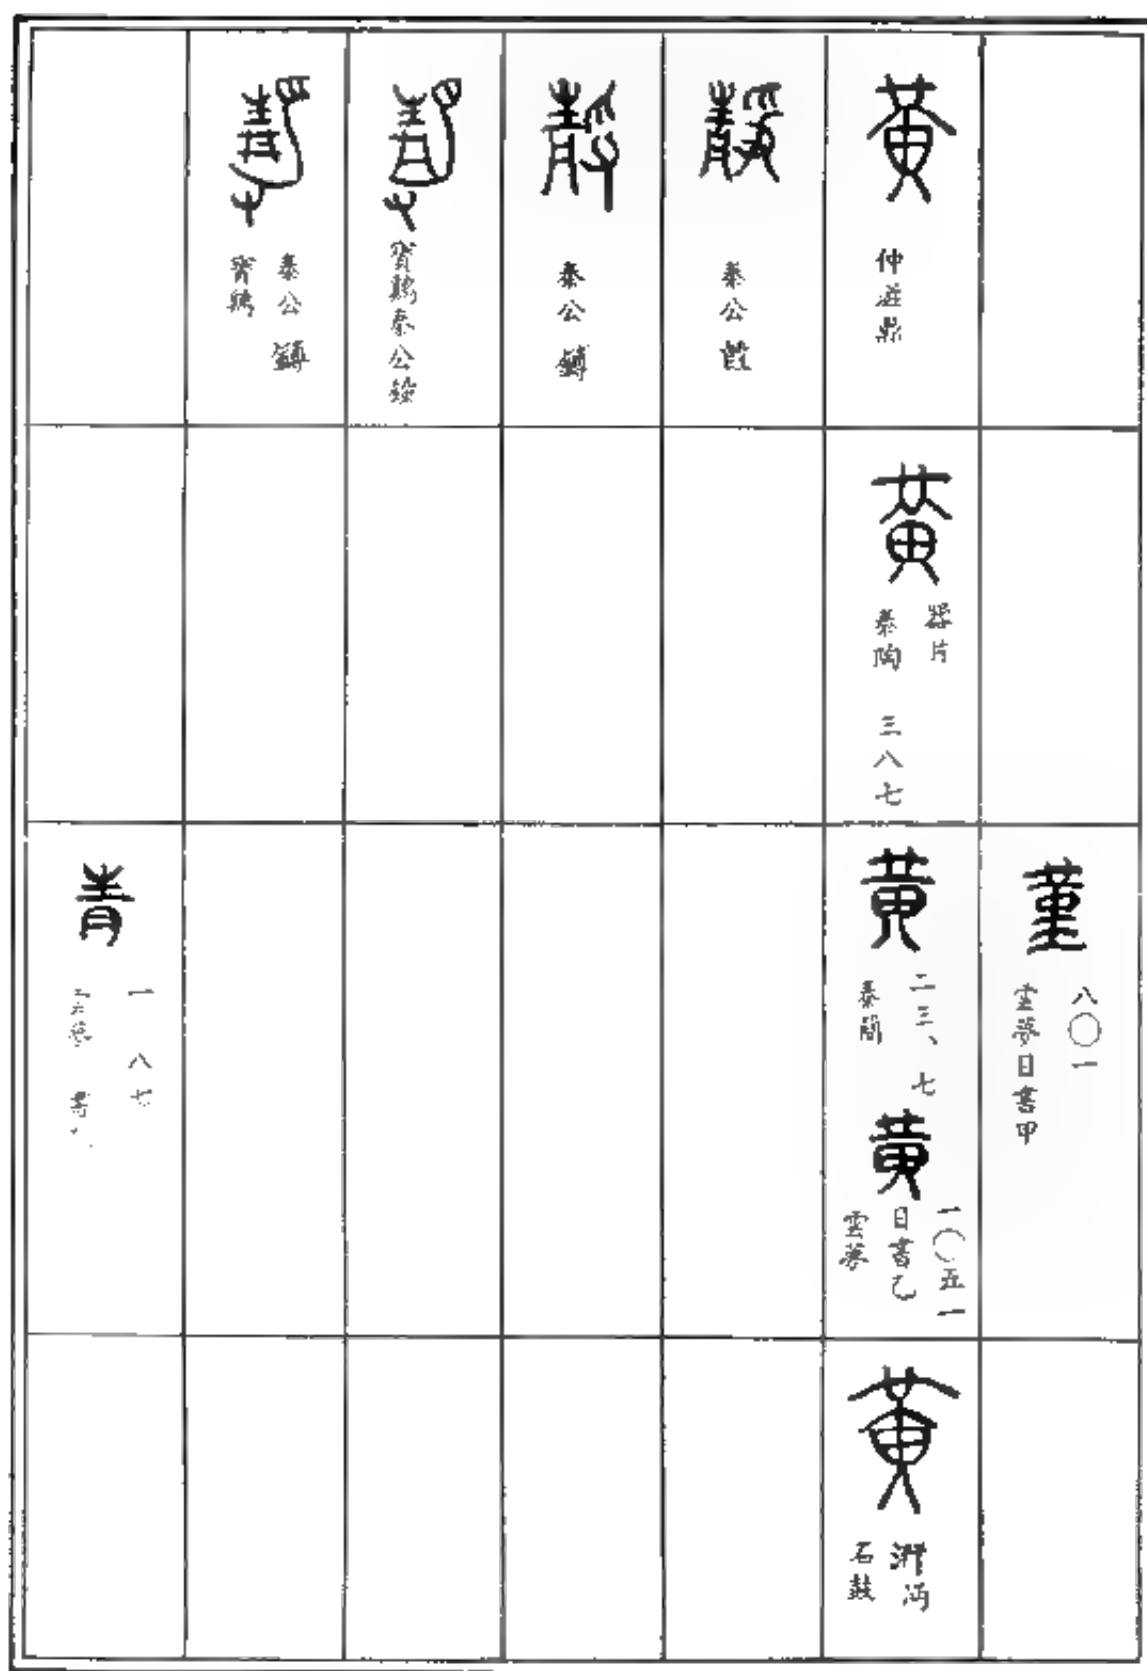 堇
八〇一
雲夢日書甲
黃
仲㳺鼎
黃
器片
秦陶 三八七
黃
二三、七
秦簡
黃
一〇五一
日書乙
雲夢
黃
汧沔
石鼓
靜
秦公𣪘
靜
秦公鎛
靜
寶鷄秦公鐘
靜
秦公鎛
寶鷄
青
一 八七